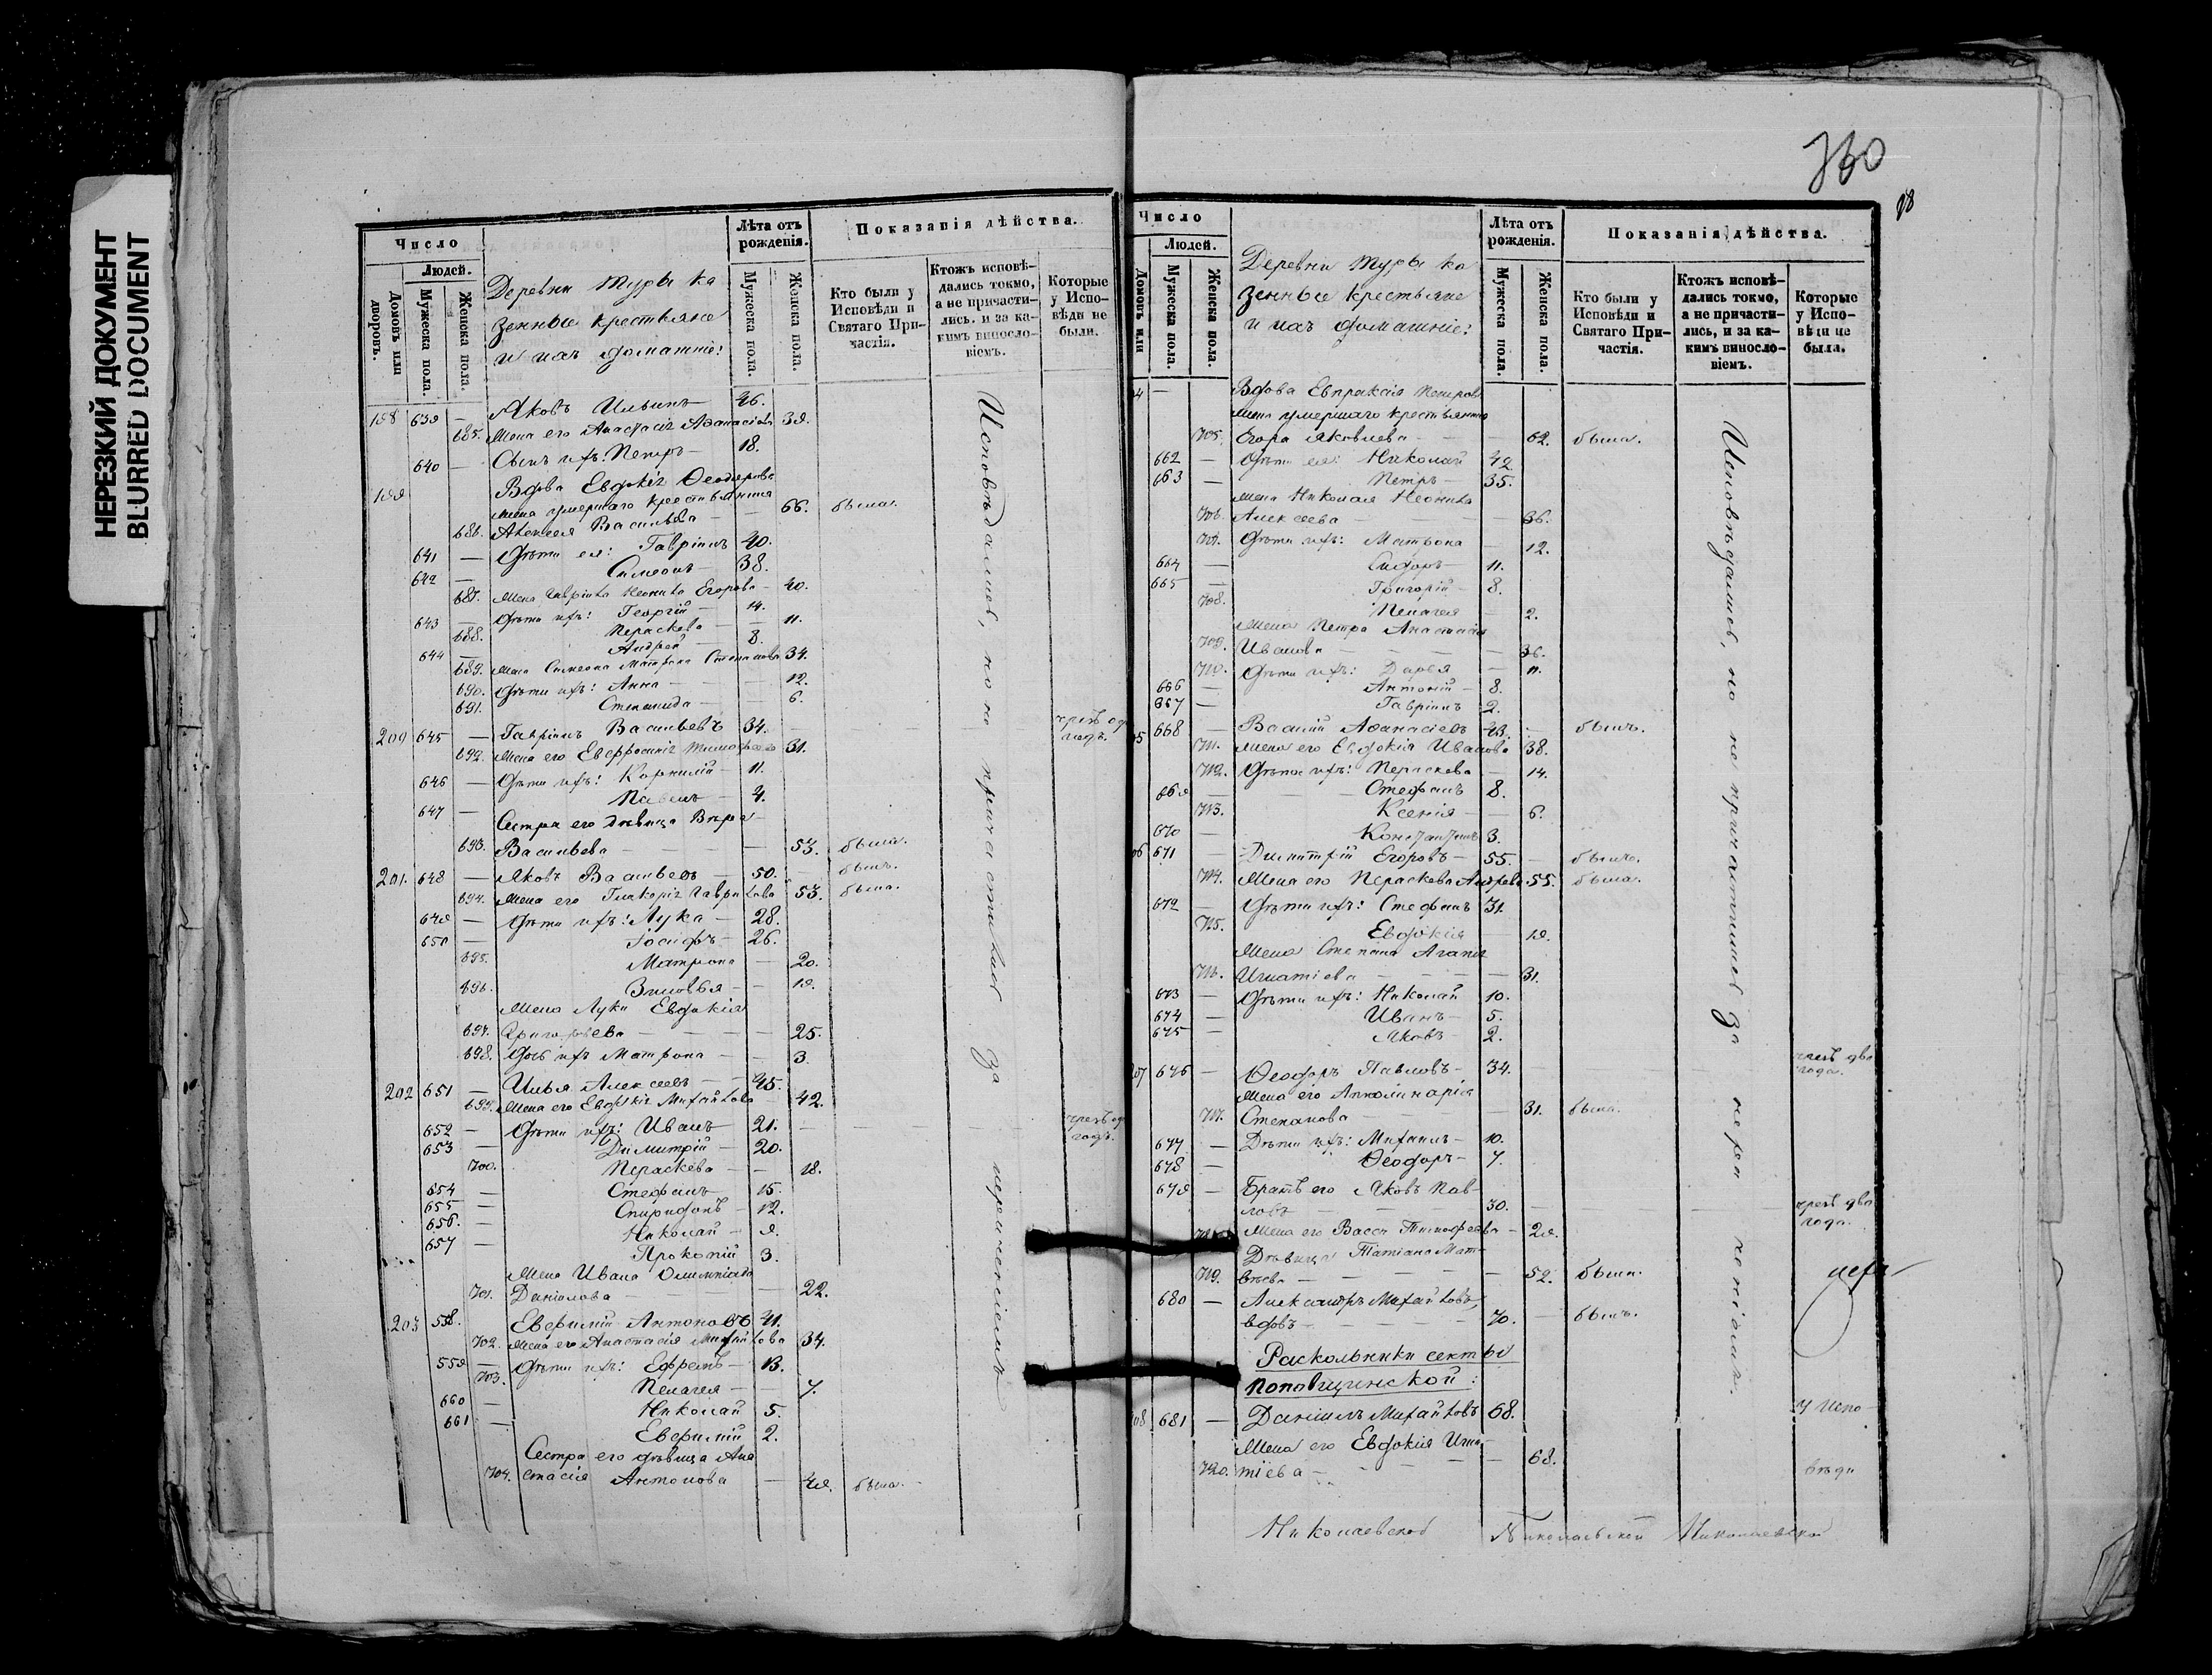 НЕРЕЗКИЙ ДОКУМЕНТ
BLURRED DOCUMENT
Число
Людей.
Домовъ или дворовъ.
Мужеска пола.
Женска пола.
Деревни Туры ка
зенные крестьяне
и ихъ домашніе:
Лѣта отъ рожденія.
Мужеска пола.
Женска пола.
Показанія дѣйства.
Кто были у Исповѣди и Святаго Причастія.
Ктожъ исповѣдались токмо, а не причастились. и за какимъ винословіемъ.
Которые у Исповѣди не были.
Исповѣдались, но не причастились за
198 639 — Яковъ Ильинъ — 46.
685. Жена его Анастасія Аѳанасіева 39.
640 — Сынъ ихъ: Петръ — 18.
199 Вдова Евдокія Ѳеодорова
жена умершаго крестьянина
686. Алексея Васильева — — 66. была.
641 — Дѣти ея: Гавріилъ 40.
642 — Симеонъ — 38.
687. Жена Гавріила Неонила Егорова — 40.
643 — Дѣти ихъ: Георгій — 14.
688. Параскева — — 11.
644 — Андрей — 8.
689. Жена Симеона Матрона Степанова 34.
690. Дѣти ихъ: Анна — — 12.
691. Степанида — — 6.
200 645 — Гавріилъ Васильевъ 34.
692. Жена его Евфросинія Тимофеева 31.
646 — Дѣти ихъ: Корнилій — 11.
647 — Павелъ — 4.
Сестра его дѣвица Вѣра
693. Васильева — — — 53. была.
201. 648 — Яковъ Васильевъ — 50. — былъ.
694. Жена его Гликерія Гаврилова 53. была.
649 — Дѣти ихъ: Лука — 28.
650 — Іосифъ — 26.
695. Матрона — 20.
696. Зиновья — — 19.
Жена Луки Евдокія
697. Григорьева — — — 25.
698. Дочь ихъ Матрона — — 3.
202 651 — Илья Алексеевъ — — 45.
699. Жена его Евдокія Михайлова — 42.
652 — Дѣти ихъ: Иванъ — 21.
653 — Димитрій — 20.
700. Параскева — — 18.
654 — Стефанъ — 15.
655 — Спиридонъ — 12.
656. — Николай — 9.
657 — Прокопій 3.
Жена Ивана Олимпіада
701. Даніилова — — — — 22.
203 558. Евфимій Антоновъ 41.
702. Жена его Анастасія Михайлова 34.
559 — Дѣти ихъ: Ефремъ — 13.
703. Пелагея — — 7.
660 — Николай 5.
661 — Евфимій 2.
Сестра его дѣвица Ана
704. стасія Антонова — 49. была.
98
Число
Людей.
Домовъ или
Мужеска пола.
Женска пола.
Деревни Туры ка
зенные крестьяне
и ихъ домашніе:
Лѣта отъ рожденія.
Мужеска пола.
Женска пола.
Показанія дѣйства.
Кто были у Исповѣди и Святаго Причастія.
Ктожъ исповѣдались токмо, а не причастились, и за какимъ винословіемъ.
Которые у Исповѣди не были.
Исповѣдались, но не причастились за нераченіемъ.
04 — Вдова Евпраксія Петрова
жена умершаго крестьянина
705. Егора Яковлева — — — 62. была.
662 — Дѣти ея: Николай 42.
663 — Петръ — 35.
Жена Николая Неонила
706. Алексеева — — — — 36.
707. Дѣти ихъ: Матрона — 12.
664 — Сидоръ — 11.
665 — Григорій — 8.
708. Пелагея — 2.
Жена Петра Анастасія
709. Иванова — — — — 36.
710. Дѣти ихъ: Дарья — 11.
666 — Антоній — 8.
667 — Гавріилъ 2.
05 668 — Василій Аѳанасіевъ 43. — былъ.
711. Жена его Евдокія Иванова 38.
712. Дѣти ихъ: Параскева — 14.
669 — Стефанъ 8.
713. Ксенія — — 6.
670 — Константинъ 3.
06 671 — Димитрій Егоровъ — 55. — былъ.
714. Жена его Параскева Андреева 55. была.
672 — Дѣти ихъ: Стефанъ 31.
715. Евдокія — 19.
Жена Степана Агапія
716. Игнатіева — — — — 31.
673 — Дѣти ихъ: Николай 10.
674 — Иванъ — 5.
675 — Яковъ — 2.
207 676 — Ѳеодоръ Павловъ — 34. — чрезъ два года.
Жена его Апполинарія
717. Степанова — — — 31. была.
677 — Дѣти ихъ: Михаилъ — 10.
678 — Ѳеодоръ — 7.
679 — Братъ его Яковъ Пав-
ловъ — — — 30. — чрезъ два года.
Жена его Васса Тимофеева — 29.
Дѣвица Татіана Мат-
719. вѣева — — — — 52. была.
680 — Александръ Михайловъ,
вдовъ — — — — 70. — былъ.
Раскольники секты
Поповщинской:
208 681 — Даніилъ Михайловъ 68. у Испо-
Жена его Евдокія Игна-
720. тіева — — — — 68. вѣди
Николаевской Никольской Николаевской